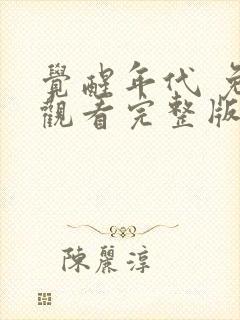 覺醒年代 免
觀看完整版
陳麗淳